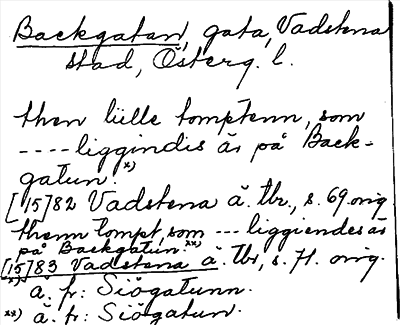 Backgatan, gata, Vadstena
stad, Österg. l.
then lülle tomptenn, som
----liggindis äs på Back-
gatun.x)
[15]82 Vadstena ä. tbr., s. 69 orig.
themn tompt, som --- liggiendes äs
på Backgatun.xx)
[15]83 Vadstena ä. tbr, s. 71. orig.
x) ä. fr: Siögatunn.
xx) ä. fr: Siögatun.